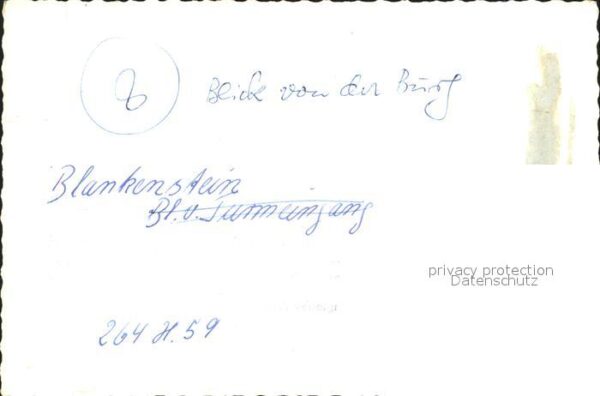 8 Blick von der Burg
Blankenstein
Bl. v. Turmeingang
privacy protection
Datenschutz
264 H. 59